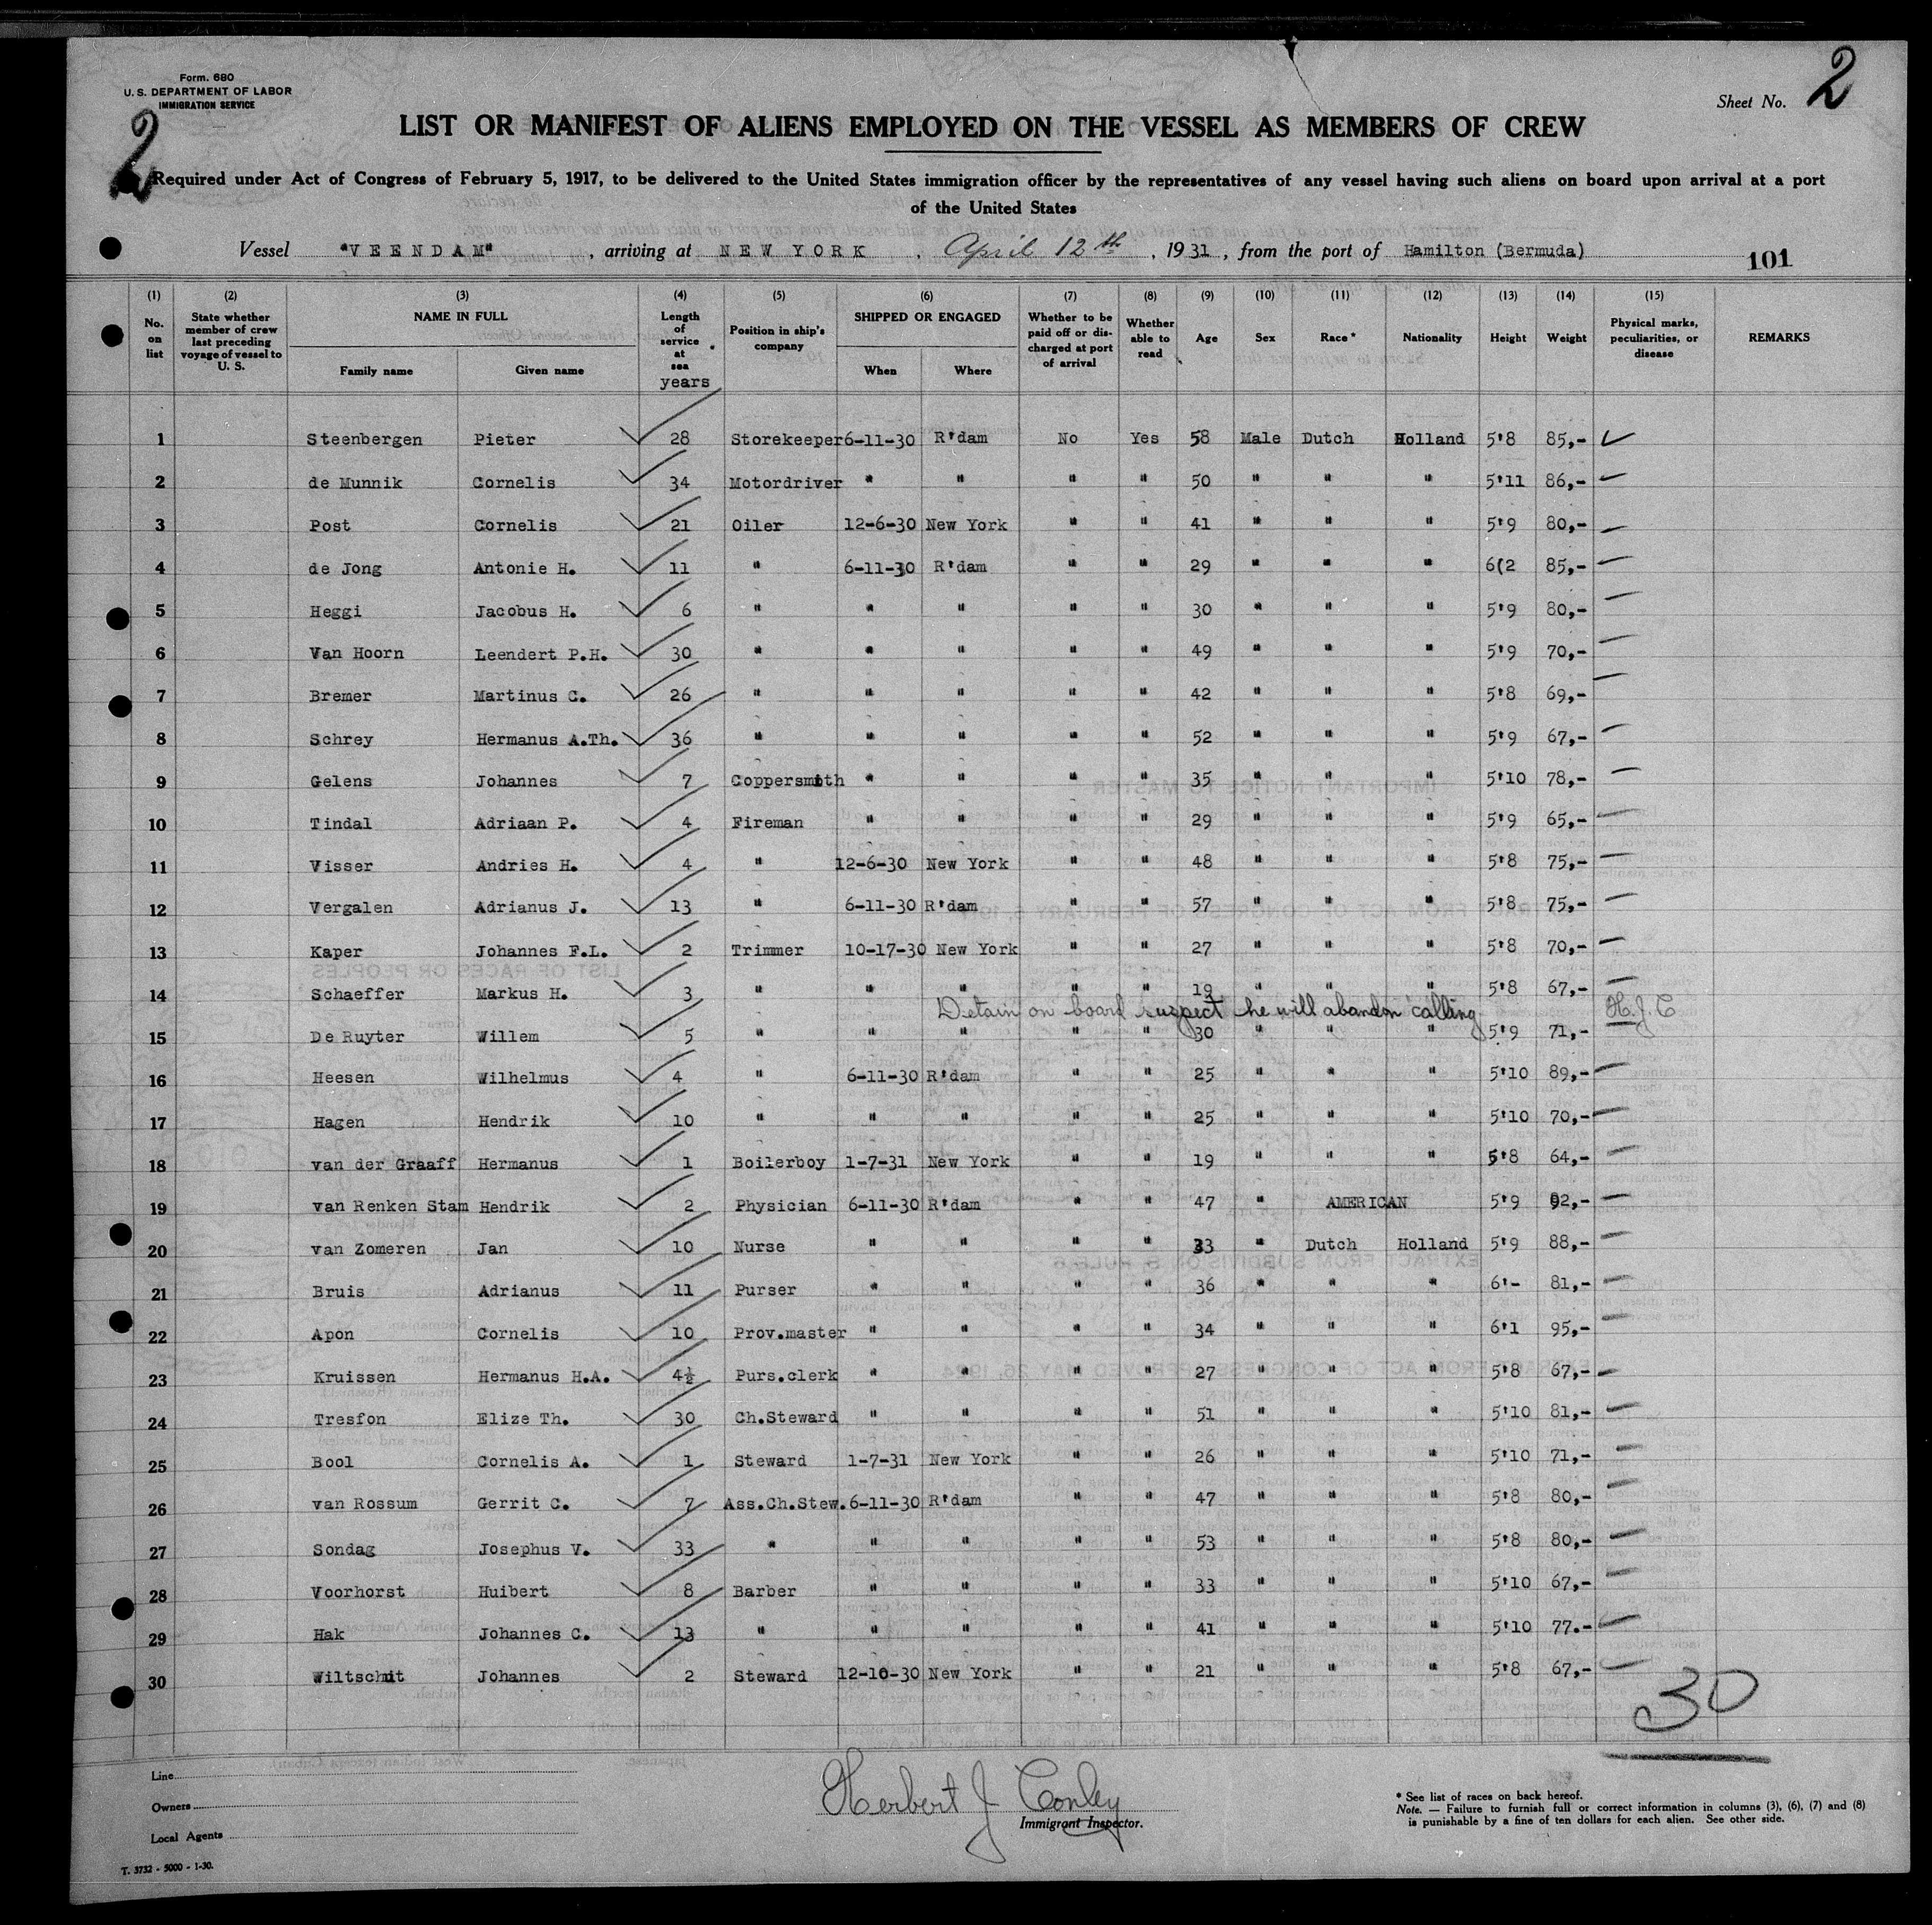 Form. 680
U. S. DEPARTMENT OF LABOR
IMMIGRATION SERVICE
2
Sheet No. 2
LIST OR MANIFEST OF ALIENS EMPLOYED ON THE VESSEL AS MEMBERS OF CREW
Required under Act of Congress of February 5, 1917, to be delivered to the United States immigration officer by the representatives of any vessel having such aliens on board upon arrival at a port
of the United States
Vessel "VEENDAM" , arriving at NEW YORK , April 12th , 1931 , from the port of Hamilton (Bermuda) 101
(1) (2) (3) (4) (5) (6) (7) (8) (9) (10) (11) (12) (13) (14) (15)
No. on list | State whether member of crew last preceding voyage of vessel to U. S. | NAME IN FULL Family name Given name | Length of service at sea years | Position in ship's company | SHIPPED OR ENGAGED When Where | Whether to be paid off or discharged at port of arrival | Whether able to read | Age | Sex | Race * | Nationality | Height | Weight | Physical marks, peculiarities, or disease | REMARKS
1 Steenbergen Pieter 28 Storekeeper 6-11-30 R'dam No Yes 58 Male Dutch Holland 5'8 85,-
2 de Munnik Cornelis 34 Motordriver " " " " 50 " " " 5'11 86,-
3 Post Cornelis 21 Oiler 12-6-30 New York " " 41 " " " 5'9 80,-
4 de Jong Antonie H. 11 " 6-11-30 R'dam " " 29 " " " 6(2 85,-
5 Heggi Jacobus H. 6 " " " " " 30 " " " 5'9 80,-
6 Van Hoorn Leendert P.H. 30 " " " " " 49 " " " 5'9 70,-
7 Bremer Martinus C. 26 " " " " " 42 " " " 5'8 69,-
8 Schrey Hermanus A.Th. 36 " " " " " 52 " " " 5'9 67,-
9 Gelens Johannes 7 Coppersmith " " " " 35 " " " 5'10 78,-
10 Tindal Adriaan P. 4 Fireman " " " " 29 " " " 5'9 65,-
11 Visser Andries H. 4 " 12-6-30 New York " " 48 " " " 5'8 75,-
12 Vergalen Adrianus J. 13 " 6-11-30 R'dam " " 57 " " " 5'8 75,-
13 Kaper Johannes F.L. 2 Trimmer 10-17-30 New York " " 27 " " " 5'8 70,-
14 Schaeffer Markus H. 3 " " " " " 19 " " " 5'8 67,-
Detain on board suspect he will abandon calling H.J.C
15 De Ruyter Willem 5 " " " " " 30 " " " 5'9 71,-
16 Heesen Wilhelmus 4 " 6-11-30 R'dam " " 25 " " " 5'10 89,-
17 Hagen Hendrik 10 " " " " " 25 " " " 5'10 70,-
18 van der Graaff Hermanus 1 Boilerboy 1-7-31 New York " " 19 " " " 5'8 64,-
19 van Renken Stam Hendrik 2 Physician 6-11-30 R'dam " " 47 " AMERICAN 5'9 92,-
20 van Zomeren Jan 10 Nurse " " " " 33 " Dutch Holland 5'9 88,-
21 Bruis Adrianus 11 Purser " " " " 36 " " " 6'- 81,-
22 Apon Cornelis 10 Prov.master " " " " 34 " " " 6'1 95,-
23 Kruissen Hermanus H.A. 4½ Purs.clerk " " " " 27 " " " 5'8 67,-
24 Tresfon Elize Th. 30 Ch.Steward " " " " 51 " " " 5'10 81,-
25 Bool Cornelis A. 1 Steward 1-7-31 New York " " 26 " " " 5'10 71,-
26 van Rossum Gerrit C. 7 Ass.Ch.Stew. 6-11-30 R'dam " " 47 " " " 5'8 80,-
27 Sondag Josephus V. 33 " " " " " 53 " " " 5'8 80,-
28 Voorhorst Huibert 8 Barber " " " " 33 " " " 5'10 67,-
29 Hak Johannes C. 13 " " " " " 41 " " " 5'10 77.-
30 Wiltschut Johannes 2 Steward 12-10-30 New York " " 21 " " " 5'8 67,-
30
Line
Owners
Local Agents
T. 3732 - 5000 - 1-30.
Herbert J Conley
Immigrant Inspector.
* See list of races on back hereof.
Note. — Failure to furnish full or correct information in columns (3), (6), (7) and (8)
is punishable by a fine of ten dollars for each alien. See other side.